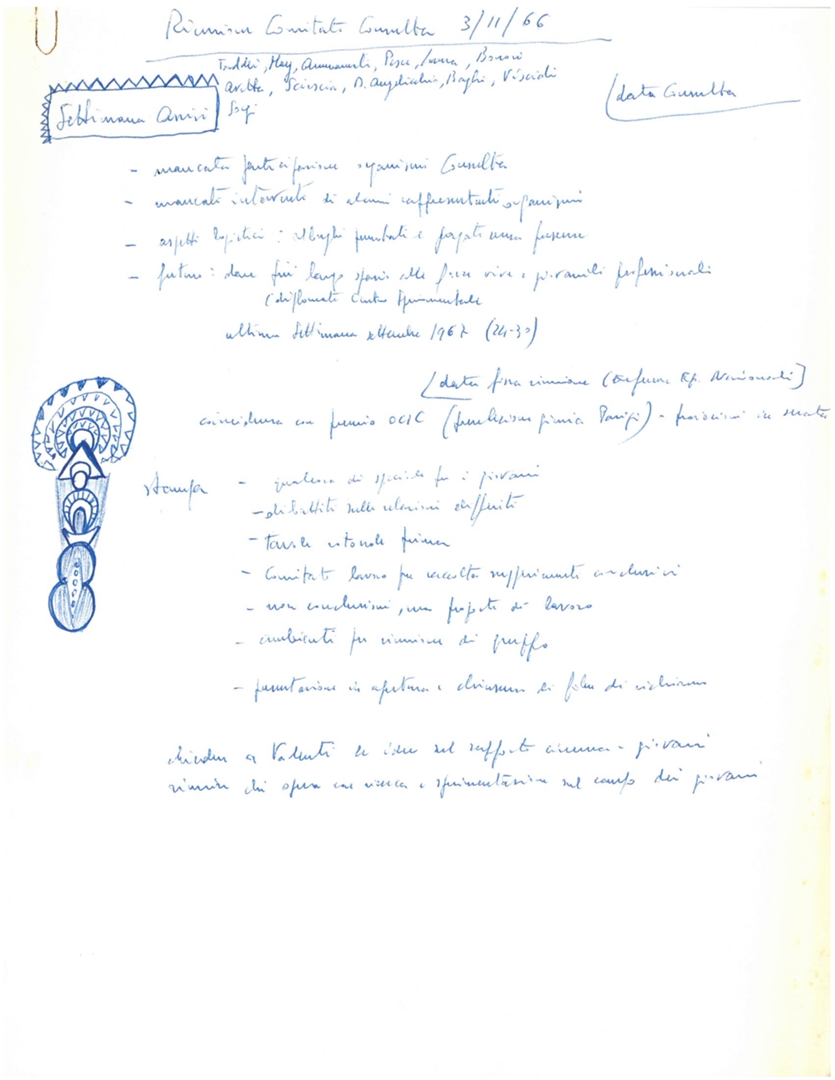 Riunione Comitato Consulta 3/11/66
Taddei, May, Ammannati, Pesce, Bonini
Aretta, Sciascia, D. Angelicchio, Baghi, Viscidi
data Consulta
Settimana Assisi
- mancata partecipazione organismi Consulta
- mancati interventi di alcuni rappresentanti organismi
- aspetti logistici : alberghi prenotati e pagati senza presenze
- futuro : dare più largo spazio alle forze vive e giovanili professionali
diplomati Centro Sperimentale
ultima Settimana settembre 1967 (24-30)
data fissa riunione
coincidenza con premio OCIC - proiezioni in serata
stampa - di speciale fra i giovani
- dibattiti sulle relazioni
- tavola rotonda prima
- Comitato lavoro per raccolta suggerimenti conclusivi
- non conclusioni, ma proposte di lavoro
- ambienti per riunione di gruppo
- presentazione in apertura e chiusura di film di richiamo
chiedere a Valenti le idee sul rapporto cinema - giovani
riunire chi opera con ricerca e sperimentazione sul campo dei giovani